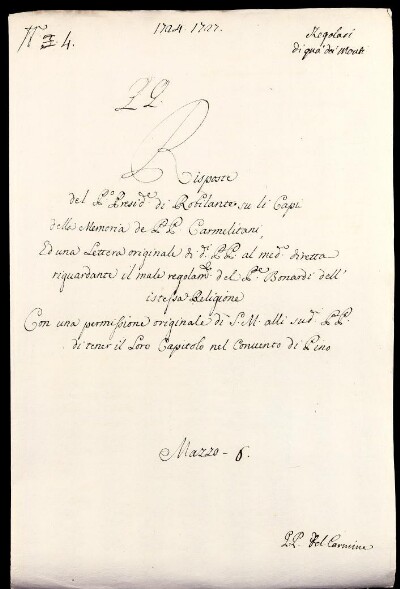 N.º 4.
1724. 1727.
Regolari
di qua' dei Monti
PP.
Risposte
del P.º Presid.e di Robilante su li Capi
della Memoria de PP. Carmelitani,
Ed una Lettera originale di d.i PP. al med.º diretta
riguardante il male regolam.to del P.e Bonardi dell'
istessa Religione
Con una permissione originale di S. M. alli sud.i PP.
di tener il Loro Capitolo nel Convento di Pino
Mazzo - 6.
PP. del Carmine